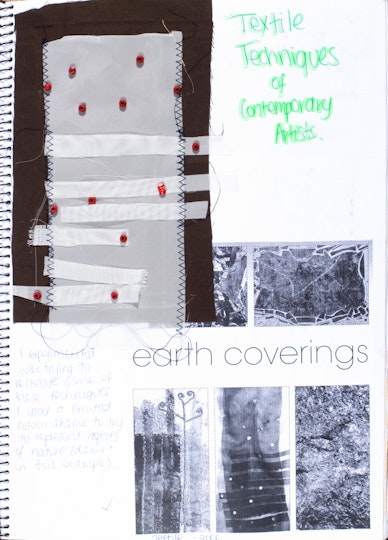 Textile
Techniques
of
Contemporary
Artists.
earth coverings
I experimented
with trying to
recreate some of
these techniques
I used a limited
colour scheme to try
to represent aspects
of nature
in this example).
Textile